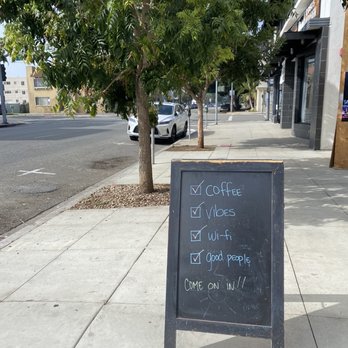 COFFEE
VIBES
Wi-fi
Good people
COME ON IN!!